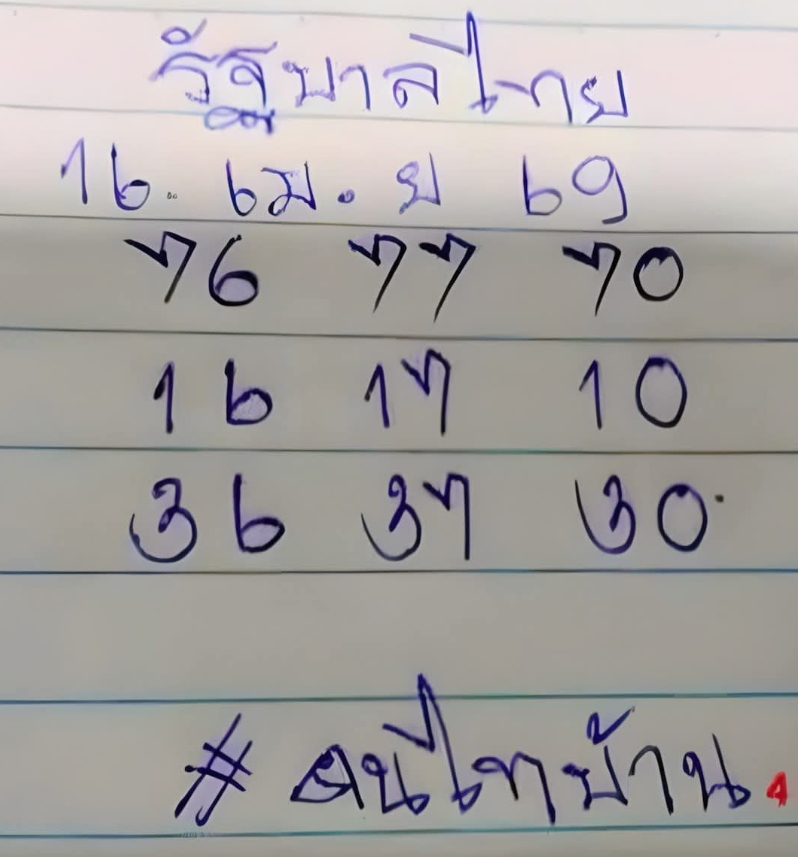 รัฐบาลไทย
16. เม.ย 69
76 77 70
16 17 10
36 37 30
#คนไทบ้าน. 4